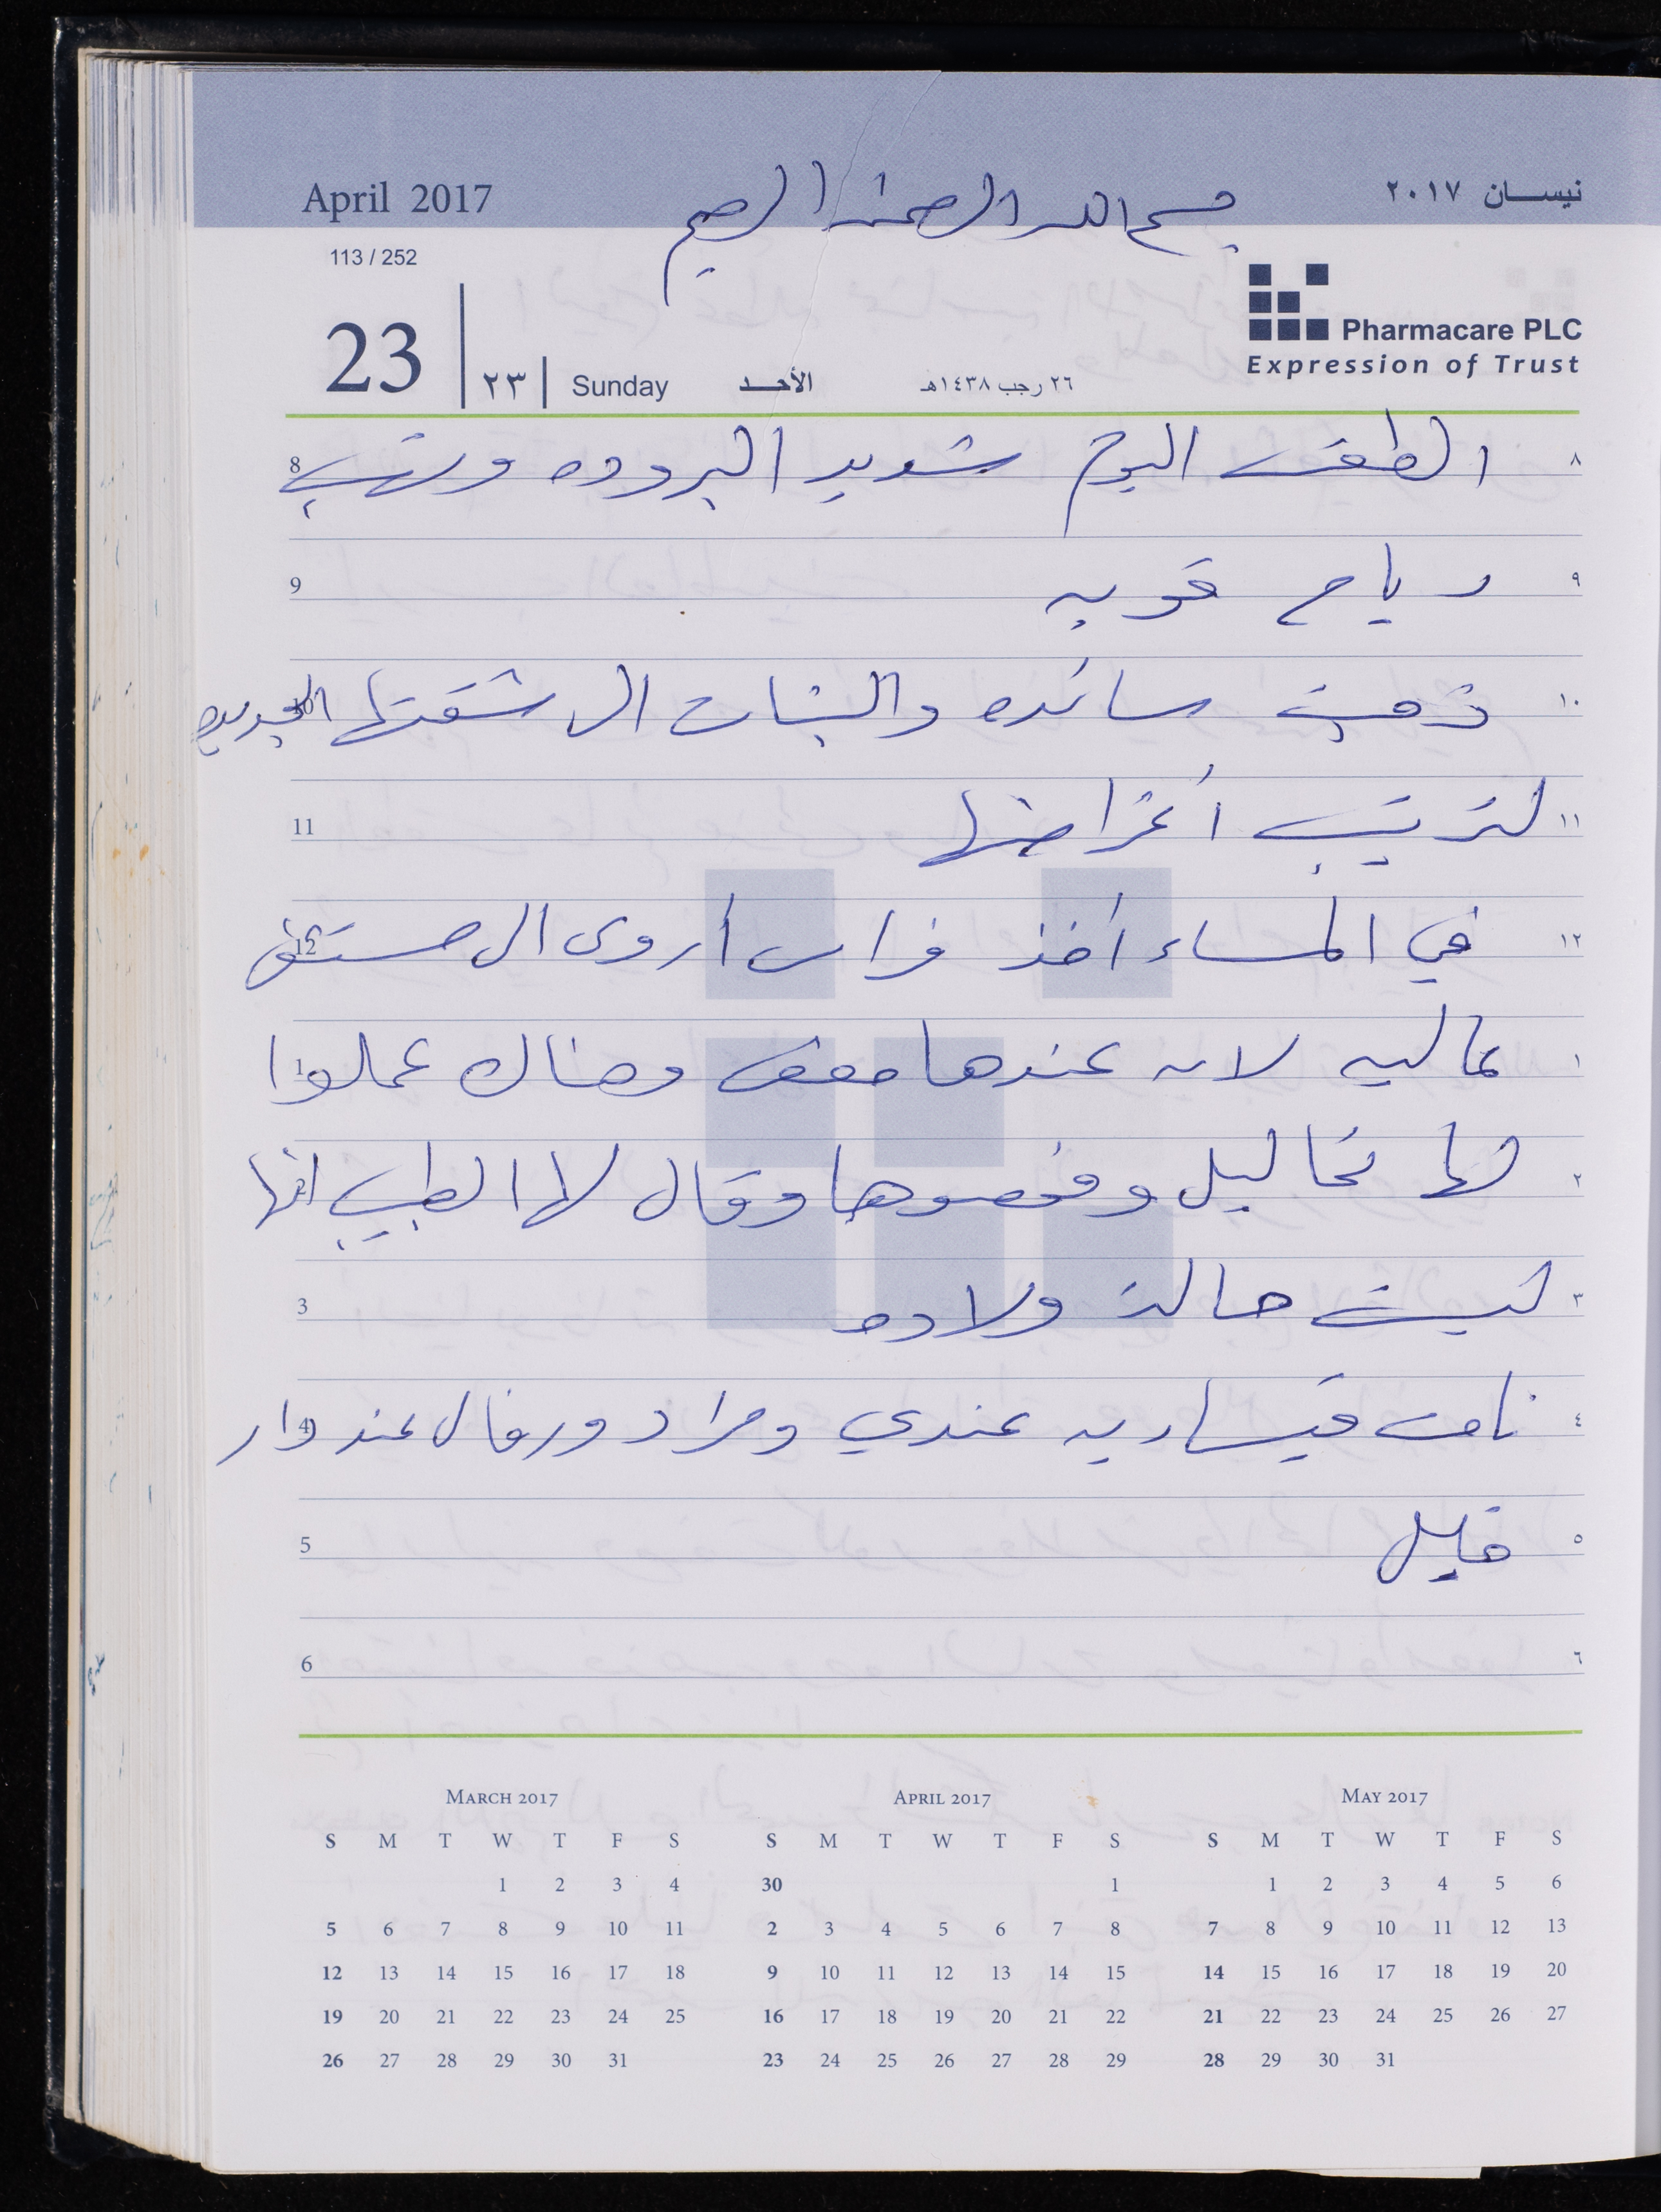 April 2017
بسم الله الرحمن الرحيم
نيسان ٢٠١٧
113 / 252
Pharmacare PLC
Expression of Trust
23 ٢٣ Sunday الأحد ٢٦ رجب ١٤٣٨هـ
٨ الطقس اليوم شديد البروده وتهب 8
٩ رياح قويه 9
١٠ ذهبت سائده والبنات الى شقتها الجديده 10
١١ لترتيب أغراضها 11
١٢ في المساء أخذ فراس أروى الى مستشفى 12
١ عاليه لانه عندها مغص وهناك عملوا 1
٢ لها تحاليل وفحصوها وقال لها الطبيب انها 2
٣ ليست حالة ولاده 3
٤ نامت قيساريه عندي ومراد ورفال عند دار 4
٥ خليل 5
٦ 6
MARCH 2017
S M T W T F S
1 2 3 4
5 6 7 8 9 10 11
12 13 14 15 16 17 18
19 20 21 22 23 24 25
26 27 28 29 30 31
APRIL 2017
S M T W T F S
30 1
2 3 4 5 6 7 8
9 10 11 12 13 14 15
16 17 18 19 20 21 22
23 24 25 26 27 28 29
MAY 2017
S M T W T F S
1 2 3 4 5 6
7 8 9 10 11 12 13
14 15 16 17 18 19 20
21 22 23 24 25 26 27
28 29 30 31